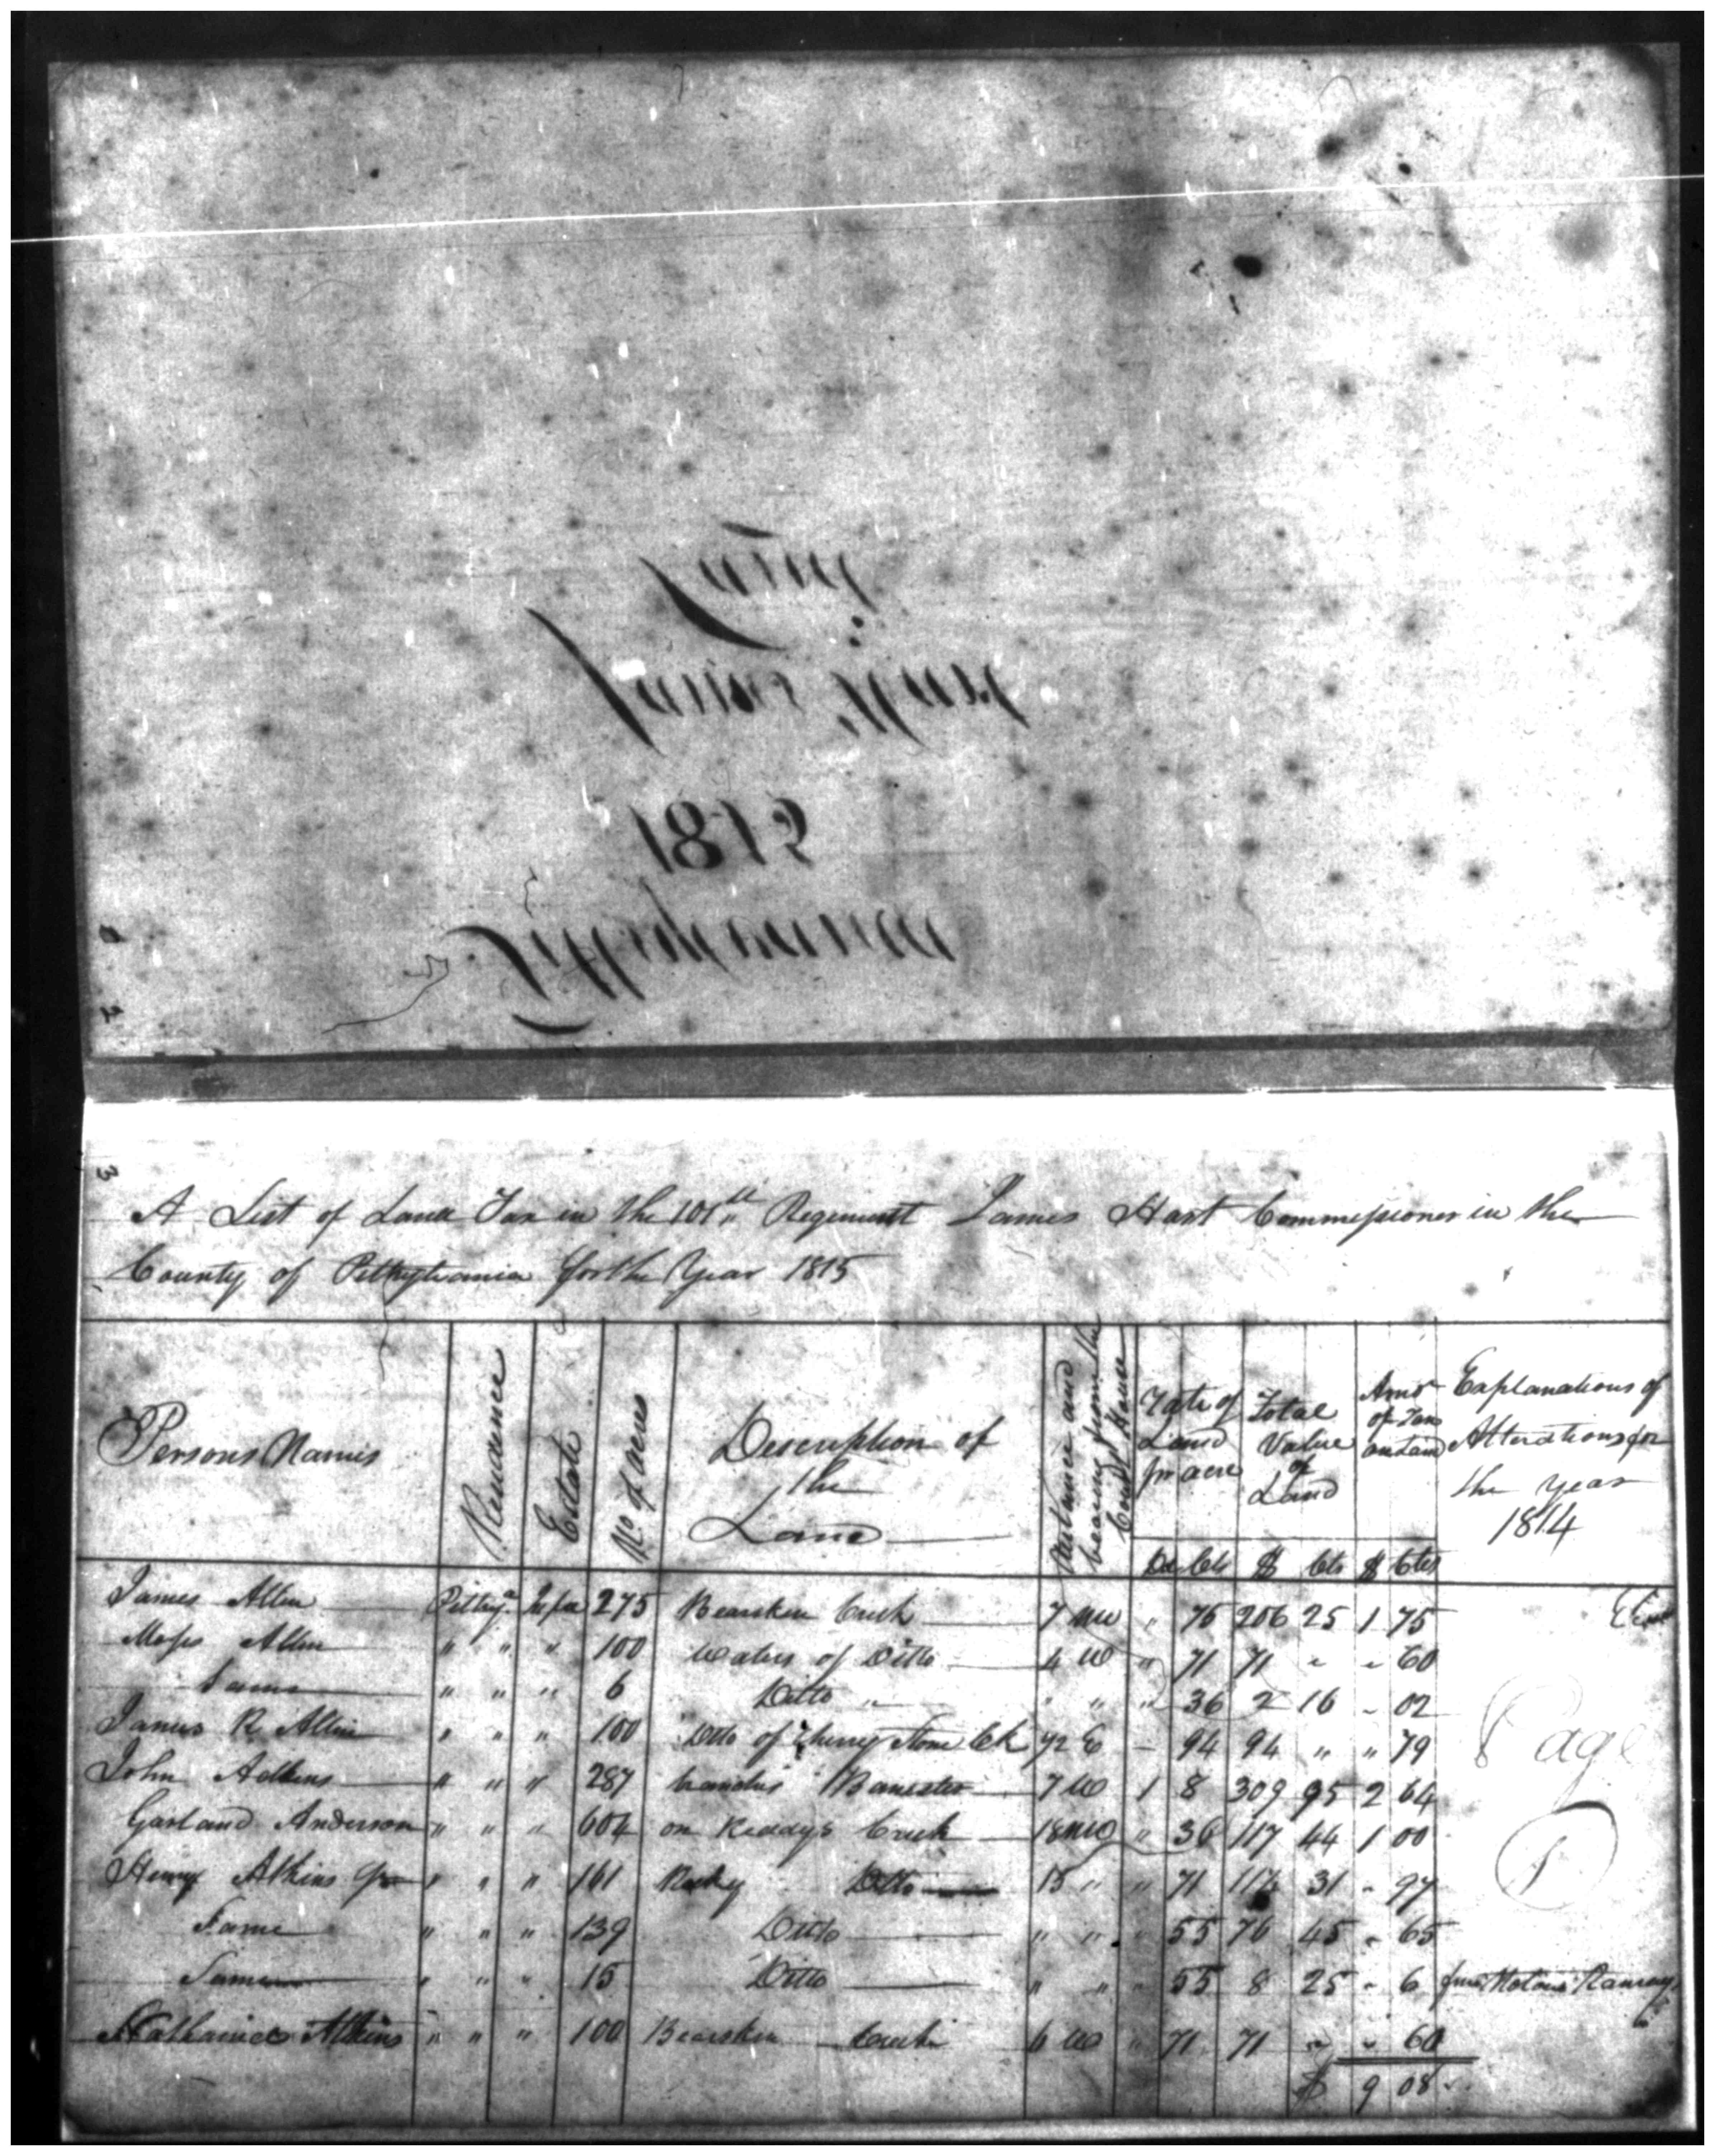 Land
James Hart
1815
Pittsylvania
A List of Land Tax in the 101st Regiment James Hart Commissioner in the
County of Pittsylvania for the Year 1815
Persons Names | Residence | Estate | No of acres | Description of the Land | Distance and bearing from the Court House | Rate of Land pr acre | Total Value of Land | Amt of Tax on Land | Explanations of Alterations for the year 1814
Cts $ Cts $ Cts
James Allen Pittsya. 275 Bearskin Creek 7 NW " 75 206 25 1 75
Moses Allen " " " 100 Waters of Ditto 4 W " 71 71 " " 60
Same " " " 6 Ditto " " " " 36 2 16 " 02
James R Allen " " " 100 Ditto of Cherry Stone Ck E - 94 94 " " 79
John Adkins " " " 287 Banester 7 W 1 8 309 95 2 64
Garland Anderson " " " 604 on Creek 18 NW " 36 117 44 1 00
Henry Atkins " " " 161 Ditto 15 " " 71 31 " 97
Same " " " 139 Ditto " " " 55 76 45 " 65
Same " " " 15 Ditto " " " 55 8 25 " 6 Ramsay
Nathaniel Atkins " " " 100 Bearskin Creek 6 W " 71 71 " " 60
$ 9 08
Page
1
3